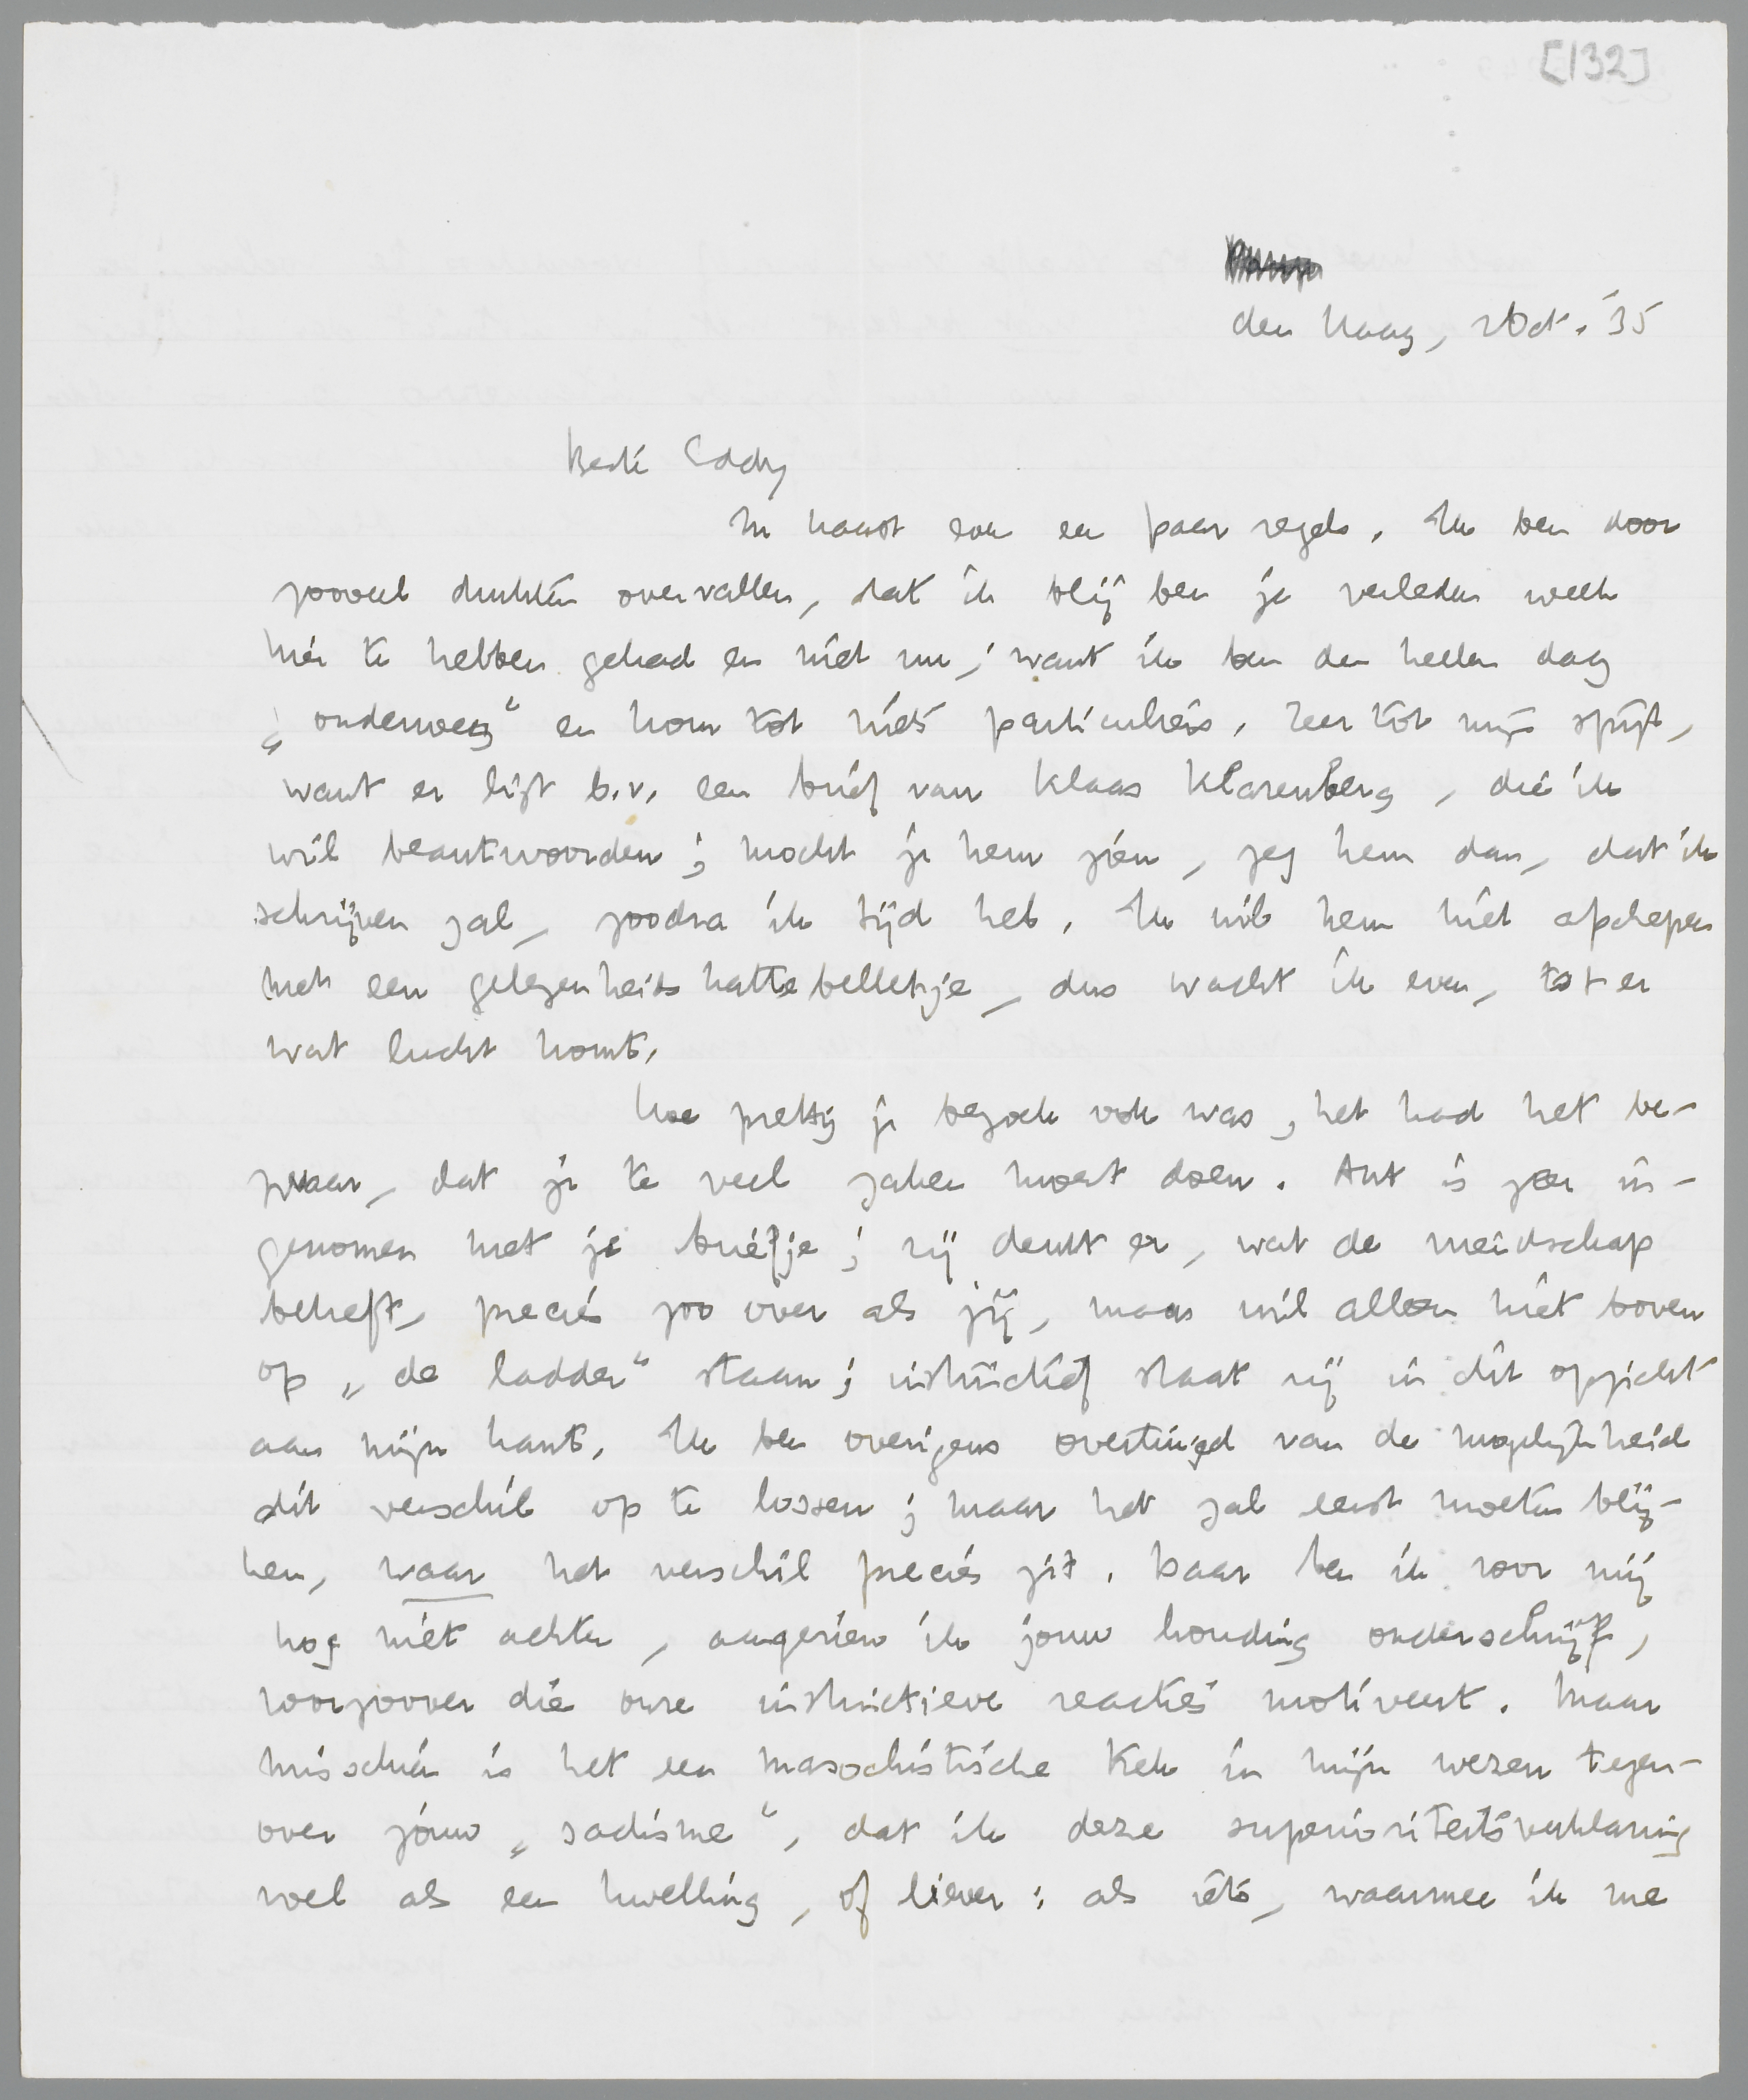 [132]
den Haag, 2 Oct. '35
Beste Eddy
In haast even een paar regels. Ik ben door
zooveel drukten overvallen, dat ik blij ben je verleden week
hier te hebben gehad en niet nu; want ik ben den heelen dag
„onderweg" en kom tot niets particuliers. Zeer tot mijn spijt,
want er ligt b.v. een brief van Klaas Klarenberg, die ik
wil beantwoorden; mocht je hem zien, zeg hem dan, dat ik
schrijven zal, zoodra ik tijd heb. Ik wil hem niet afschepen
met een gelegenheidskattebelletje, dus wacht ik even, tot er
wat lucht komt.
Hoe prettig je bezoek ook was, het had het be-
zwaar, dat je te veel zaken moest doen. Ant is zeer in-
genomen met je briefje; zij denkt er, wat de meidschap
betreft, precies zoo over als jij, maar wil alleen niet boven
op „de ladder" staan; instinctief staat zij in dit opzicht
aan mijn kant. Ik ben overigens overtuigd van de mogelijkheid
dit verschil op te lossen; maar het zal eerst moeten blij-
ken, waar het verschil precies zit. Daar ben ik voor mij
nog niet achter, aangezien ik jouw houding onderschrijf,
voorzoover die onze instinctieve reacties motiveert. Maar
misschien is het een masochistische trek in mijn wezen tegen-
over jouw „sadisme", dat ik deze superioriteitsverklaring
wel als een kwelling, of liever: als iets, waarmee ik me